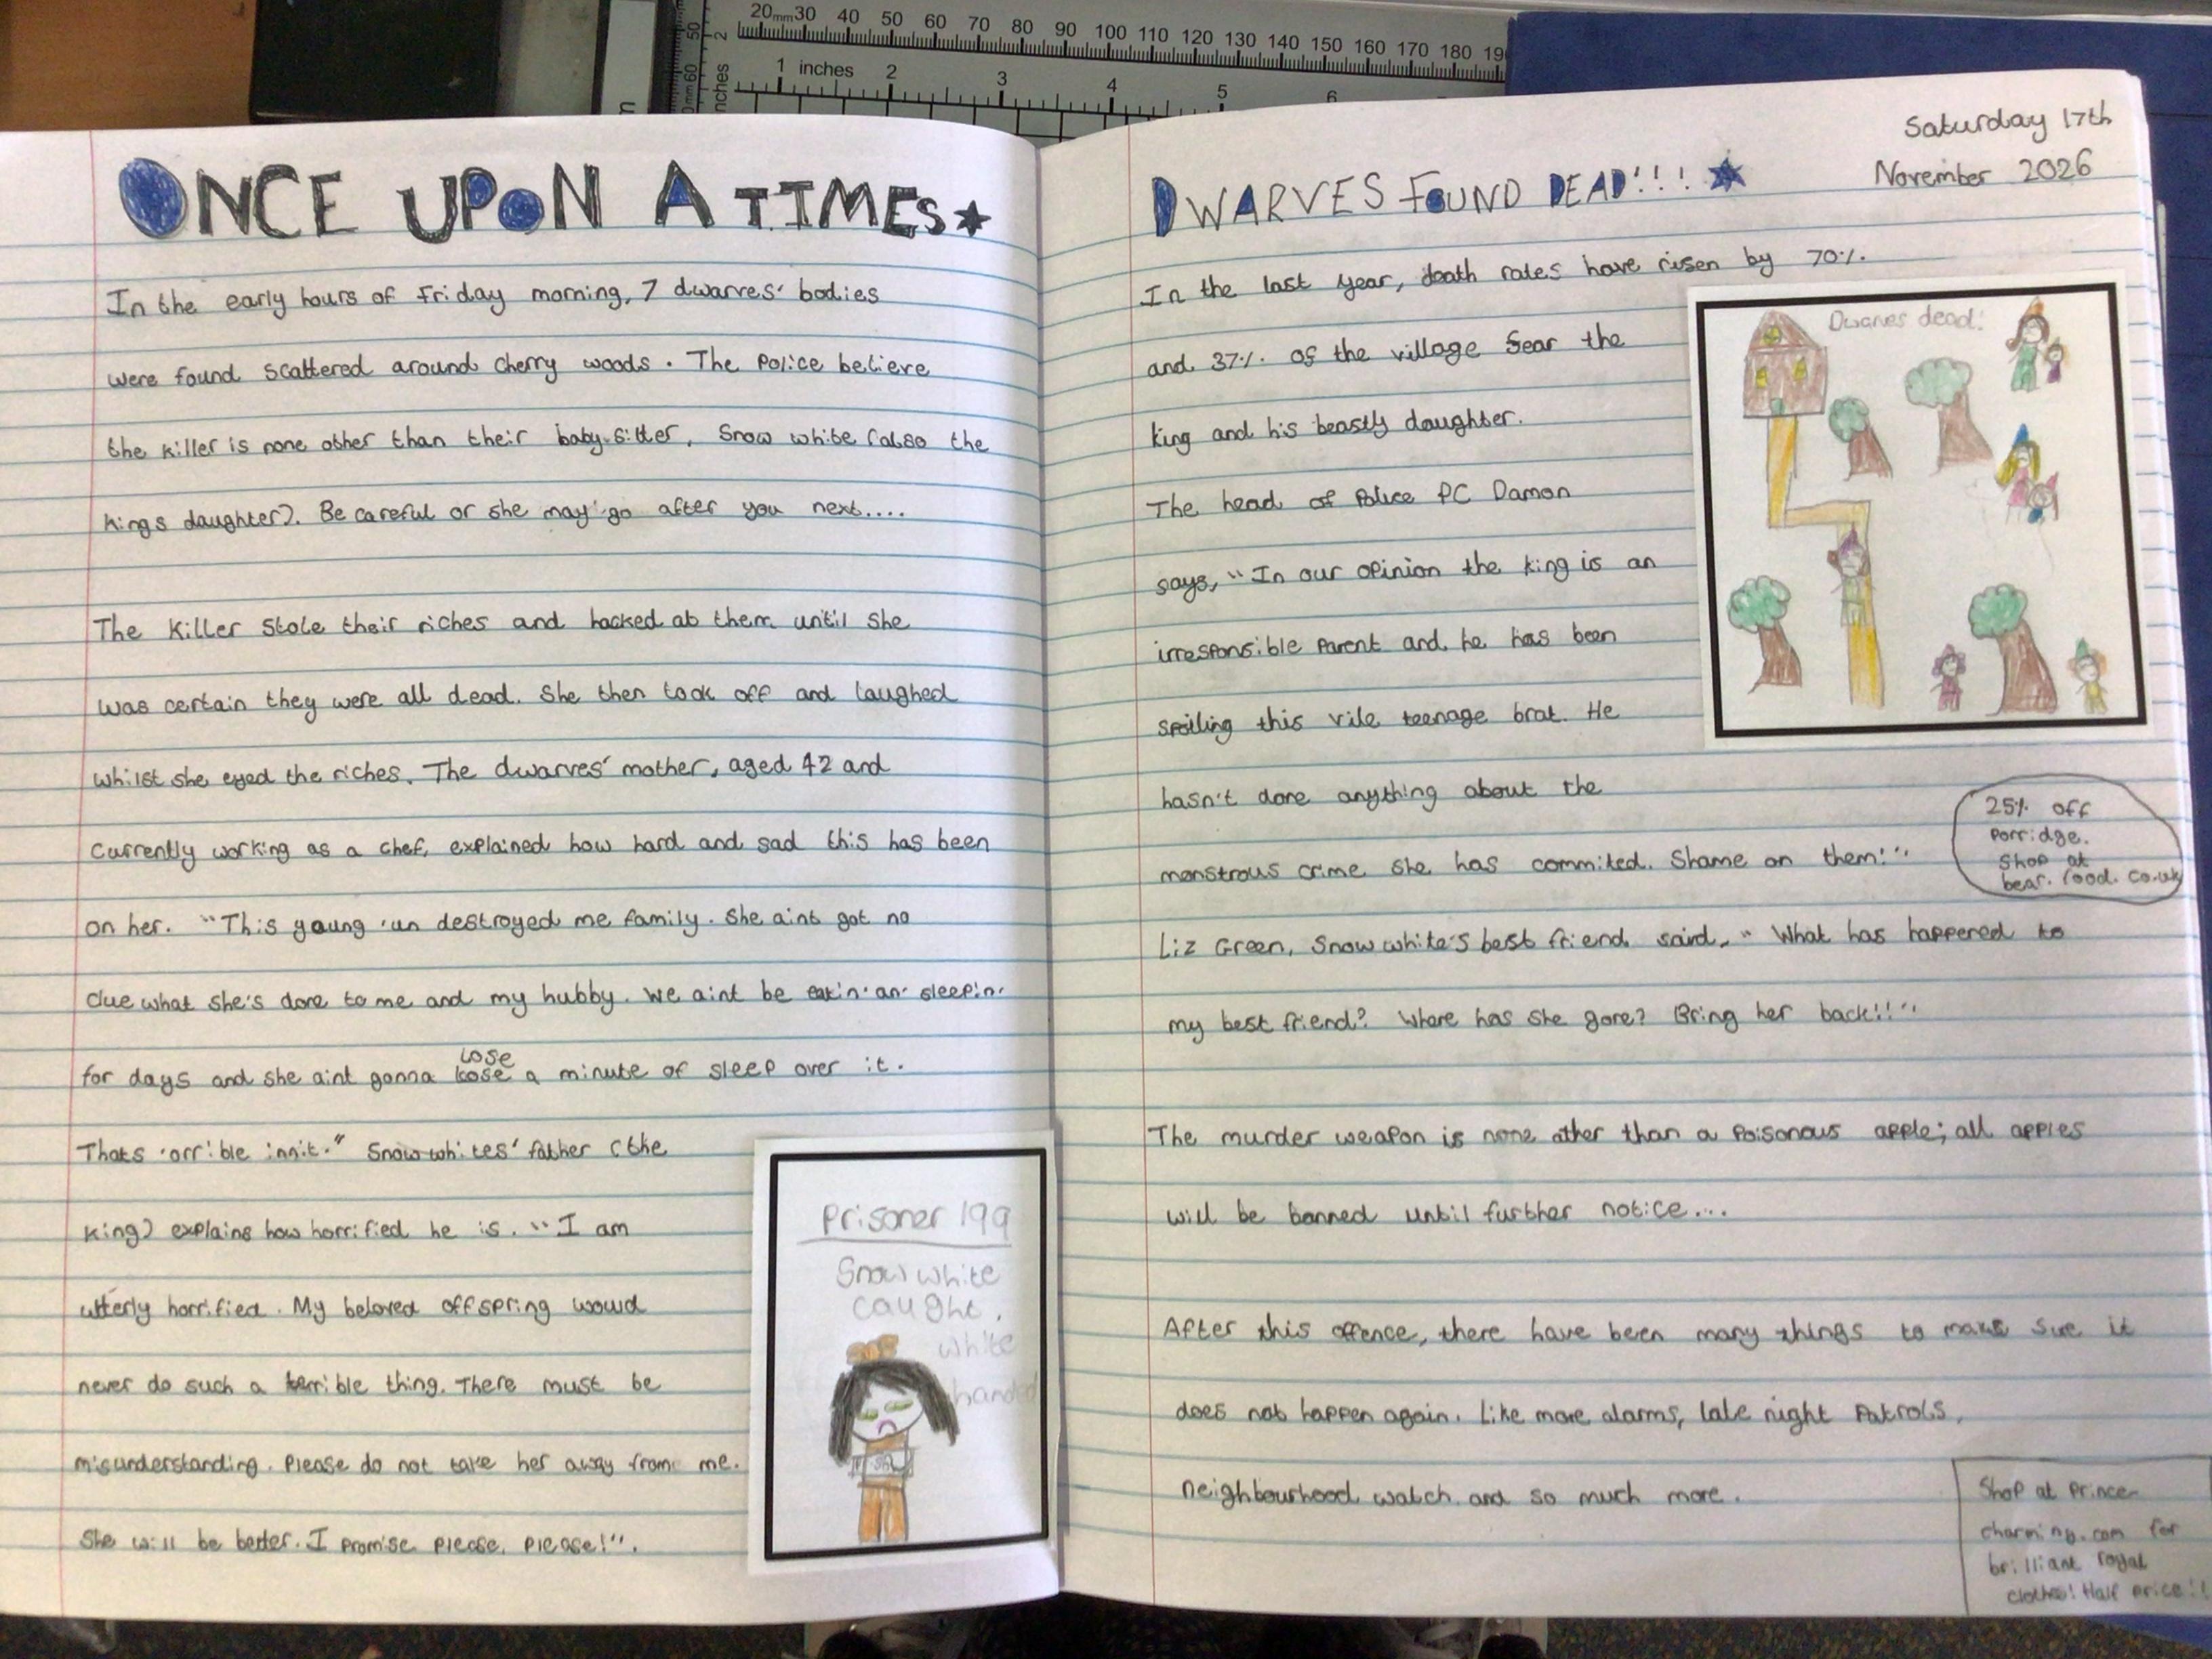 20mm30 40 50 60 70 80 90 100 110 120 130 140 150 160 170 180 19
1 inches 2 3 4 5 6
ONCE UPON A TIMES
In the early hours of Friday morning, 7 dwarves' bodies
were found scattered around cherry woods. The Police believe
the killer is none other than their baby-sitter, Snow white (also the
kings daughter). Be careful or she may go after you next....
The killer stole their riches and hacked at them until she
was certain they were all dead. She then took off and laughed
whilst she eyed the riches. The dwarves' mother, aged 42 and
currently working as a chef, explained how hard and sad this has been
on her. "This young 'un destroyed me family. She aint got no
clue what she's done to me and my hubby. We aint be eatin' an' sleepin'
lose
for days and she aint gonna lose a minute of sleep over it.
Thats 'orrible innit." Snow whites' father (the
king) explains how horrified he is. "I am
utterly horrified. My beloved offspring would
never do such a terrible thing. There must be
misunderstanding. Please do not take her away from me.
She will be better. I promise please, please!".
Prisoner 199
Snow white
caught.
white
handed
Saturday 17th
November 2026
DWARVES FOUND DEAD!!!
In the last year, death rates have risen by 70%.
and 37% of the village fear the
king and his beastly daughter.
The head of Police PC Damon
says, "In our opinion the king is an
irresponsible parent and he has been
spoiling this vile teenage brat. He
hasn't done anything about the
monstrous crime she has commited. Shame on them!"
Dwarves dead!
25% off
Porridge.
Shop at
bear.food.co.uk
Liz Green, Snow white's best friend said, "What has happened to
my best friend? Where has she gone? Bring her back!!"
The murder weapon is none other than a poisonous apple; all apples
will be banned until further notice...
After this offence, there have been many things to make sure it
does not happen again. Like more alarms, late night patrols,
neighbourhood watch and so much more.
Shop at Prince
charming.com for
brilliant royal
clothes! Half price!!